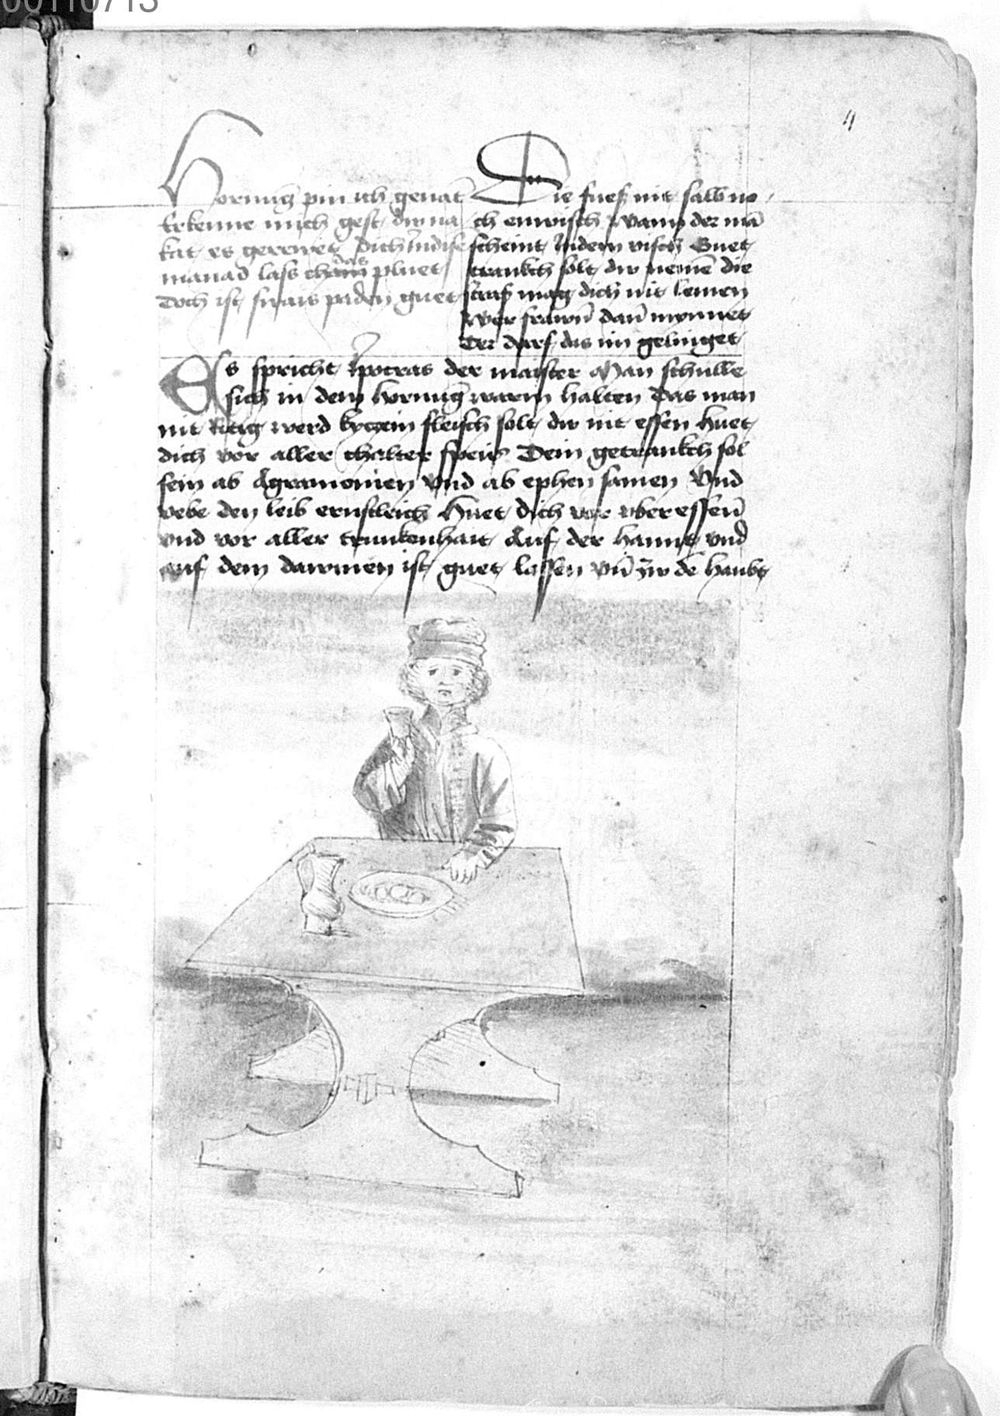 00110713
4
Hornung pin ich genãt
Erkenne mich gest du na
kat es gerewet dich Indise
das
manad lass cham pluet
Doch ist swais paden guet
Die fuess nit salb no
ch enwisch Wann der mã
scheint Indem visch Guet
trankch solt dw nemẽ die
straf mag dich nit lemen
Wer frawn dan mynnet
Der darf das im gelinget
Es spricht Ypocras der maister Man schulle
sich in dem hornung warm halten Das man
nit Ritig werd kytzein fleisch solt dw nit essen Huet
dich vor aller chalter speis Dein getrankch sol
sein ab Agramonien Vnd ab ephen samen Vnd
webe den leib ernstleich Huet dich vor vberessen
vnd vor aller trunkenhait Auf der hannt vnd
auf dem dawmen ist guet lassen vñ zw dẽ haubt